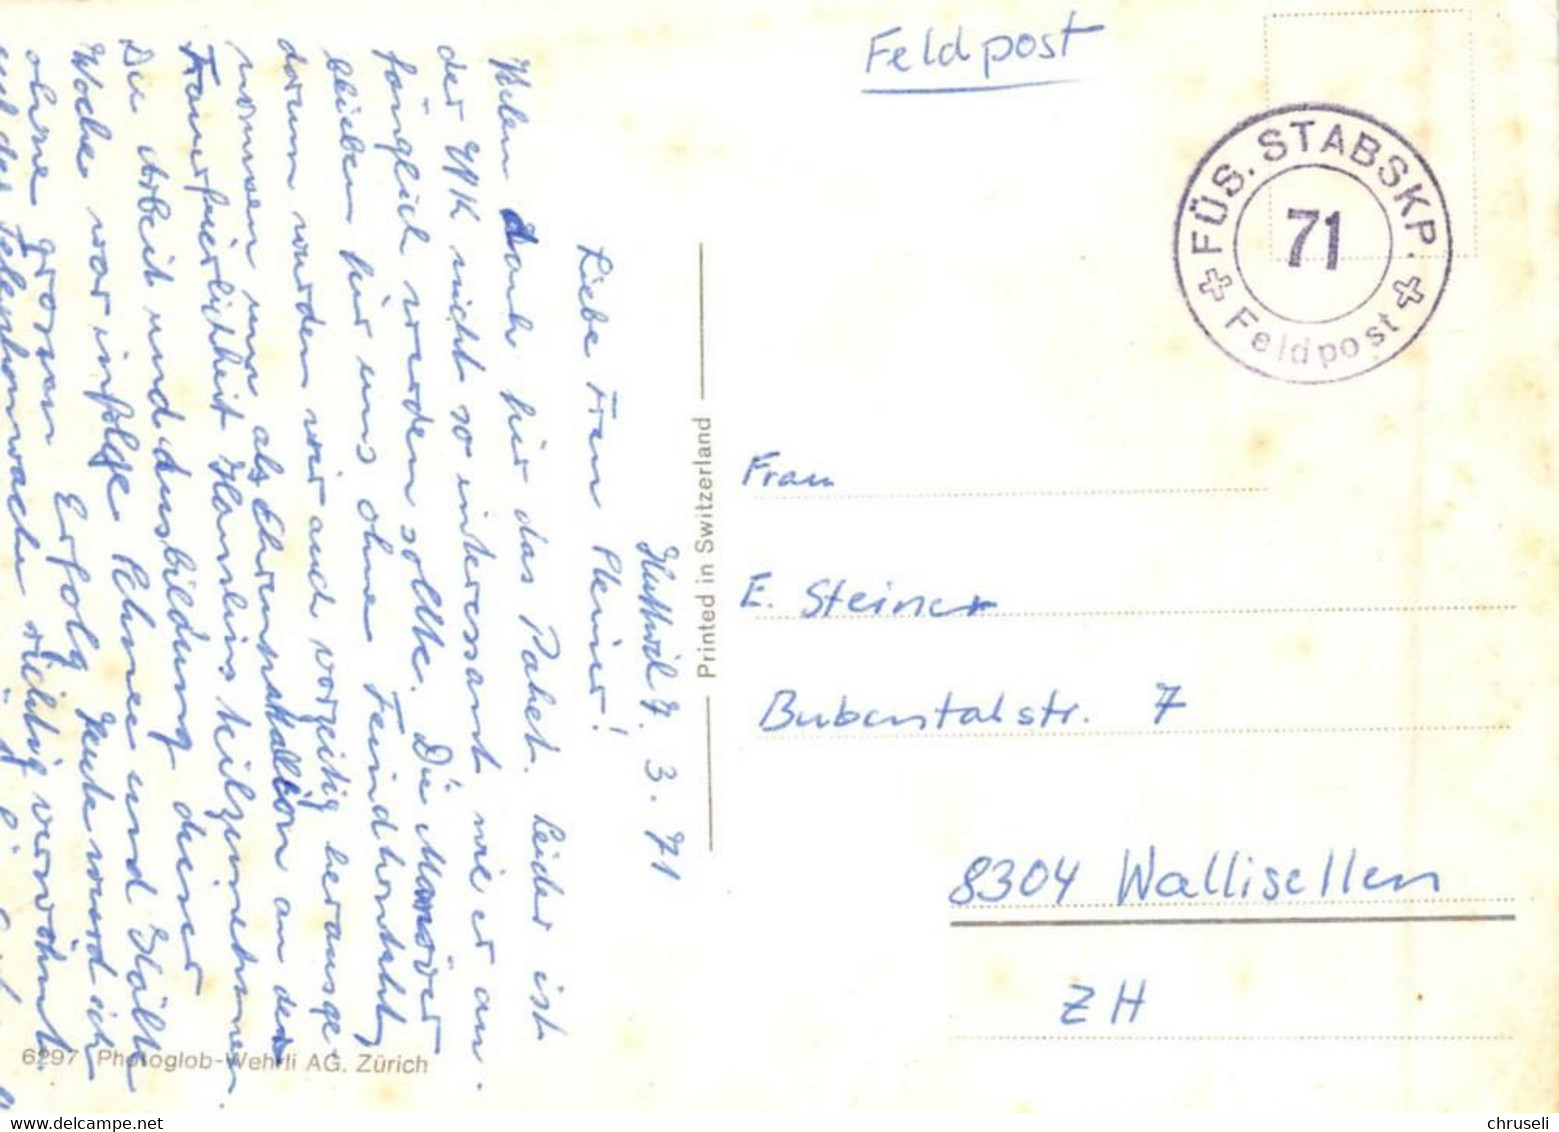 Feldpost
FÜS. STABSKP.
71
Feldpost
Huttwil 7. 3. 71
Liebe Frau Steiner!
Vielen Dank für das Paket. Leider ist
der WK nicht so interessant wie er an-
fänglich werden sollte. Die Manöver
blieben für uns ohne Feindkontakt,
darum wurden wir auch vorzeitig herausge-
nommen um als Ehrenbataillon an der
Trauerfeierlichkeit teilzunehmen.
Die Arbeit und Ausbildung dieser
Woche war infolge Schnee und Kälte
ohne grossen Erfolg. Heute wurd ich
auf der Telephonwache richtig verwöhnt.
Printed in Switzerland
Frau
E. Steiner
Bubentalstr. 7
8304 Wallisellen
ZH
6297 Photoglob-Wehrli AG. Zürich
www.delcampe.net
chruseli